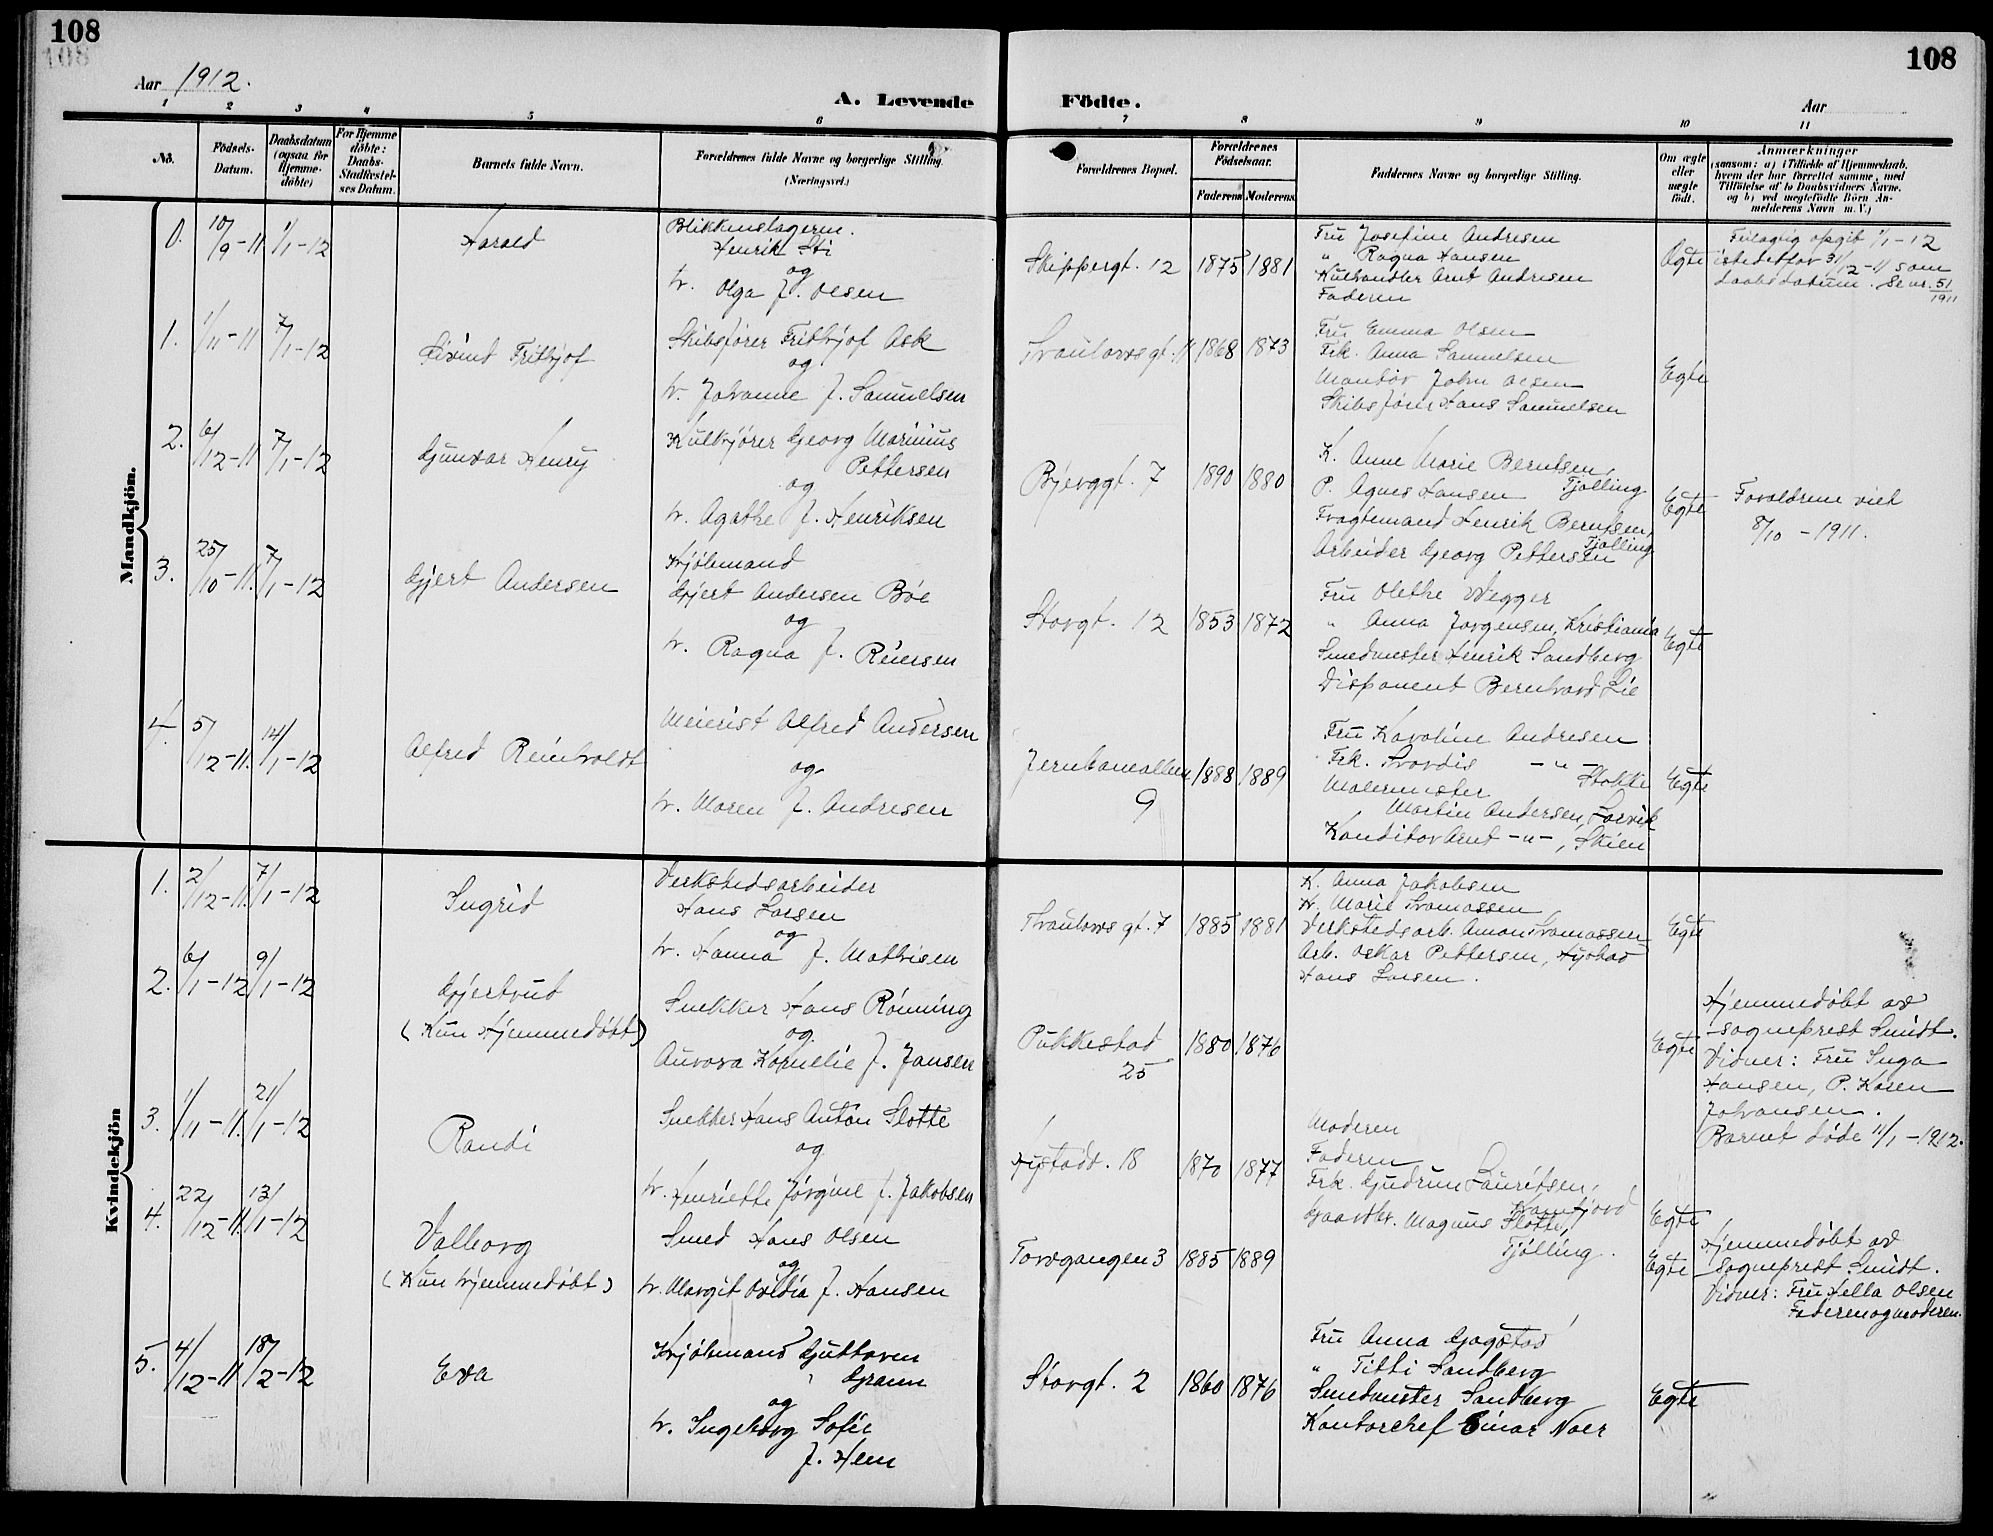 108
108
108
Aar 1912.
A. Levende Födte.
Aar
1 2 3 4 5 6 7 8 9 10 11
No.
Födsels-
Datum.
Daabsdatum
(ogsaa for
Hjemme-
döbte)
For Hjemme
döbte:
Daabs-
Stadfæstel-
ses Datum.
Barnets fulde Navn.
Forældrenes fulde Navne og borgerlige Stilling.
(Næringsvei.)
Forældrenes Bopæl.
Forældrenes
Födselsaar.
Faderens Moderens
Faddernes Navne og borgerlige Stilling.
Om ægte
eller
uægte
födt.
Anmærkninger
(saasom: a) i Tilfælde af Hjemmedaab,
hvem der har forrettet samme, med
Tilföielse af to Daabsvidners Navne,
og b) ved uægtefödte Börn An-
melderens Navn m. V.)
Mandkjön.
0. 10/9-11 1/1-12
Harald
Blikkenslageren.
Henrik Sti
og
h. Olga f. Olsen
Skippergt. 12 1875 1881
Fru Josefine Andresen
" Ragna Hansen
Kulhandler Arnt Andresen
Faderen
Egte
Feilagtig opgit 1/1-12
istedetfor 31/12-11 som
daabsdatum. Se nr. 51/1911
1. 1/11-11 7/1-12
Eivind Frithjof
Skibsfører Frithjof Ask
og
h. Johanne f. Samuelsen
Traulowsgt. 11 1868 1873
Fru Emma Olsen
Frk. Anna Samuelsen
Mandør John Olsen
Skibsfører Hans Samuelsen
Egte
2. 6/12-11 7/1-12
Gunvar Henry
Kulkjører Georg Marinius
Pettersen
og
h. Agathe f. Henriksen
Bjerggt. 7 1890 1880
K. Anne Marie Berntsen,
P. Agnes Hansen Tjølling
Fragtemand Henrik Berntsen,
Tjølling
Arbeider Georg Pettersen
Egte
Forældrene viet
8/10-1911.
3. 25/10-11. 7/1-12
Gjert Andersen
Kjøbmand
Gjert Andersen Bøe
og
h. Ragna f. Reiersen
Storgt. 12 1853 1872
Fru Olethe Wegger
" Anna Jørgensen, Kristiania
Smedmester Henrik Sandberg
Disponent Bernhard Lie
Egte
4. 5/12-11. 14/1-12
Alfred Reinholdt
Meierist Alfred Andersen
og
h. Maren f. Andresen
Jernbanealleen 1888 1889
9
Fru Karoline Andresen
Frk. Tordis -"-
Stokke
Malermester
Martin Andersen, Larvik
Konditor Arnt -"-, Skien
Egte
Kvindekjön
1. 2/12-11. 7/1-12
Ingrid
Verkstedsarbeider
Hans Larsen
og
h. Hanna f. Mathisen
Thraulows gt. 7 1885 1881
K. Anna Jakobsen
K. Marie Tomassen
Verkstedsarb. Amon Tomassen
Arb. Oskar Pettersen, Hystad
Hans Larsen.
Egte
2. 6/1-12 9/1-12
Gjertrud
(Kun Hjemmedøbt)
Snekker Hans Rønning
og
Aurora Kornelie f. Jansen
Pukkestad
25
1880 1876
Egte
Hjemmedøbt av
sogneprest Smidt.
Vidner: Fru Inga
Hansen, P. Karen
Johansen.
Barnet døde 11/1-1912.
3. 1/11-11. 21/1-12
Randi
Snekker Hans Anton Slotte
og
h. Henriette Jørgine f. Jakobsen
Hystadv. 18 1870 1877
Moderen
Faderen
Frk. Gudrun Lauritsen,
Gaardbr. Magnus Slotte,
Tjølling.
Egte
4. 22/12-11. 13/1-12
Valborg
(Kun hjemmedøbt)
Smed Hans Olsen
og
h. Margit Ovidia f. Hansen
Torvgangen 3 1885 1889
Egte
Hjemmedøbt av
sogneprest Smidt.
Vidner: Fru Hella Olsen
Faderen og moderen.
5. 4/12-11 18/2-12
Eva
Kjøbmand Guttorm
Gram
og
h. Ingeborg Sofie
f. Hem
Storgt. 2 1860 1876
Fru Anna Gogstad
" Titti Sandberg
Smedmester Sandberg
Kontorchef Einar Noer
Egte